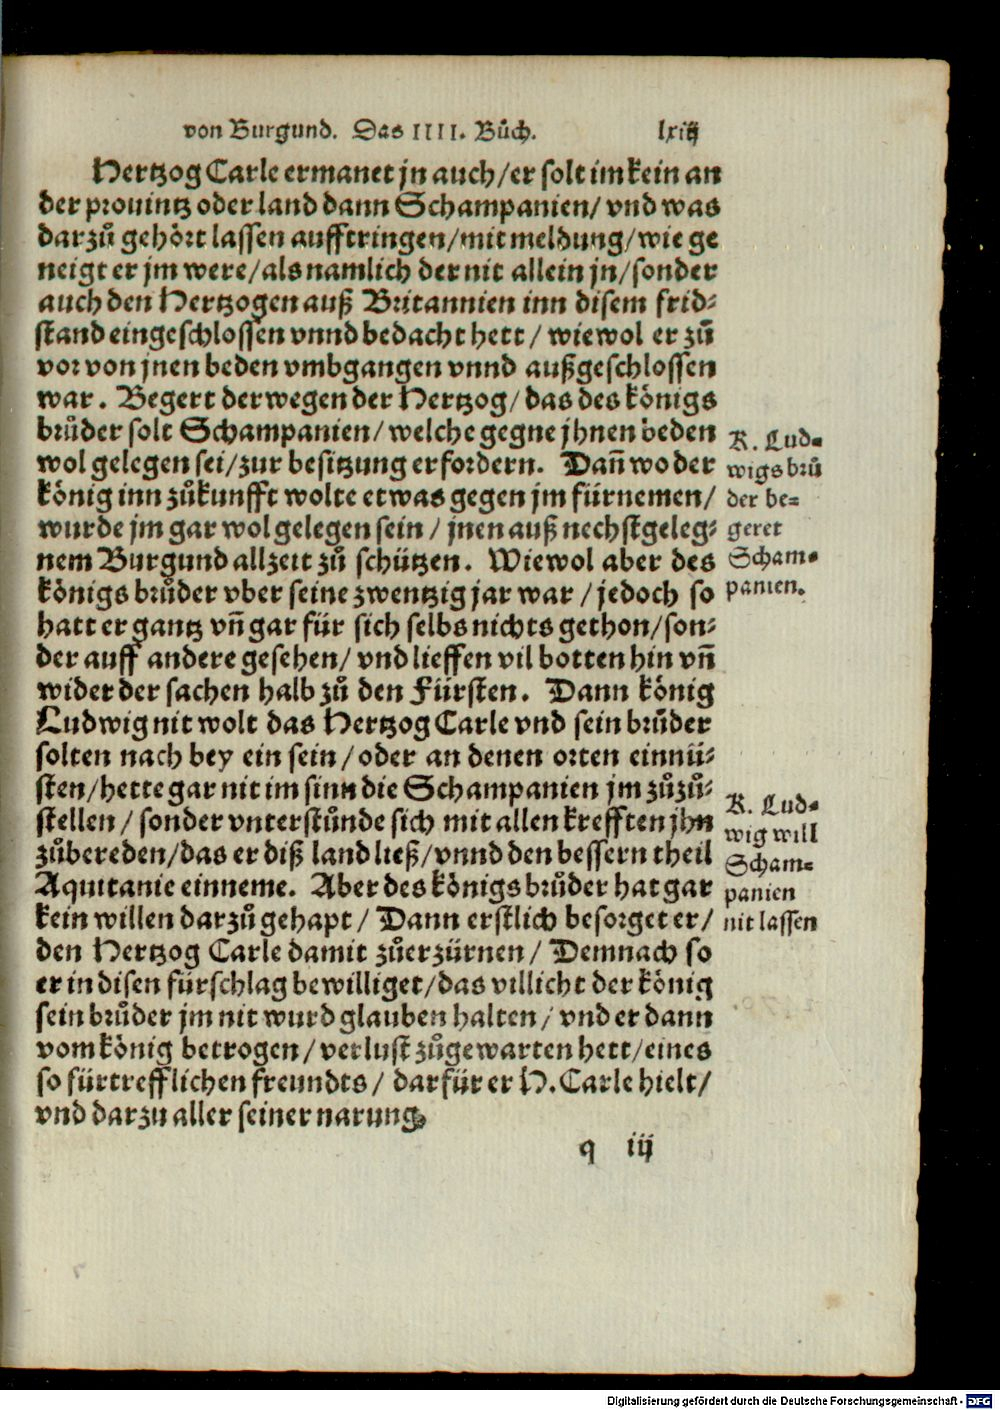 von Burgund. Das IIII. Bůch. lxiij
Hertzog Carle ermanet jn auch/er solt im kein an
der prouintz oder land dann Schampanien/ vnd was
darzů gehört lassen aufftringen/mit meldung/wie ge
neigt er jm were/als namlich der nit allein jn/sonder
auch den Hertzogen auß Britannien inn disem frid-
stand eingeschlossen vnnd bedacht hett/ wiewol er zů
vor von jnen beden vmbgangen vnnd außgeschlossen
war. Begert derwegen der Hertzog/ das des königs
brůder solt Schampanien/welche gegne jhnen beden
wol gelegen sei/zur besitzung erfordern. Dañ wo der
könig inn zůkunfft wolte etwas gegen jm fürnemen/
wurde jm gar wol gelegen sein/ jnen auß nechstgeleg-
nem Burgund allzeit zů schützen. Wiewol aber des
königs brůder vber seine zwentzig jar war/ jedoch so
hatt er gantz vñ gar für sich selbs nichts gethon/son-
der auff andere gesehen/ vnd lieffen vil botten hin vñ
wider der sachen halb zů den Fürsten. Dann könig
Ludwig nit wolt das Hertzog Carle vnd sein brůder
solten nach bey ein sein/oder an denen orten einnü-
sten/hette gar nit im sinn die Schampanien jm zůzů-
stellen/ sonder vnterstůnde sich mit allen krefften jhn
zůbereden/das er diß land ließ/vnnd den bessern theil
Aquitanie einneme. Aber des königs brůder hat gar
kein willen darzů gehapt/ Dann erstlich besorget er/
den Hertzog Carle damit zůerzürnen/ Demnach so
er in disen fürschlag bewilliget/das villicht der könig
sein brůder jm nit wurd glauben halten/ vnd er dann
vom könig betrogen/verlust zůgewarten hett/eines
so fürtrefflichen freundts/ darfür er H. Carle hielt/
vnd darzu aller seiner narung.
q iij
K. Lud-
wigs brů
der be-
geret
Scham-
panien.
K. Lud-
wig will
Scham-
panien
nit lassen
Digitalisierung gefördert durch die Deutsche Forschungsgemeinschaft - DFG